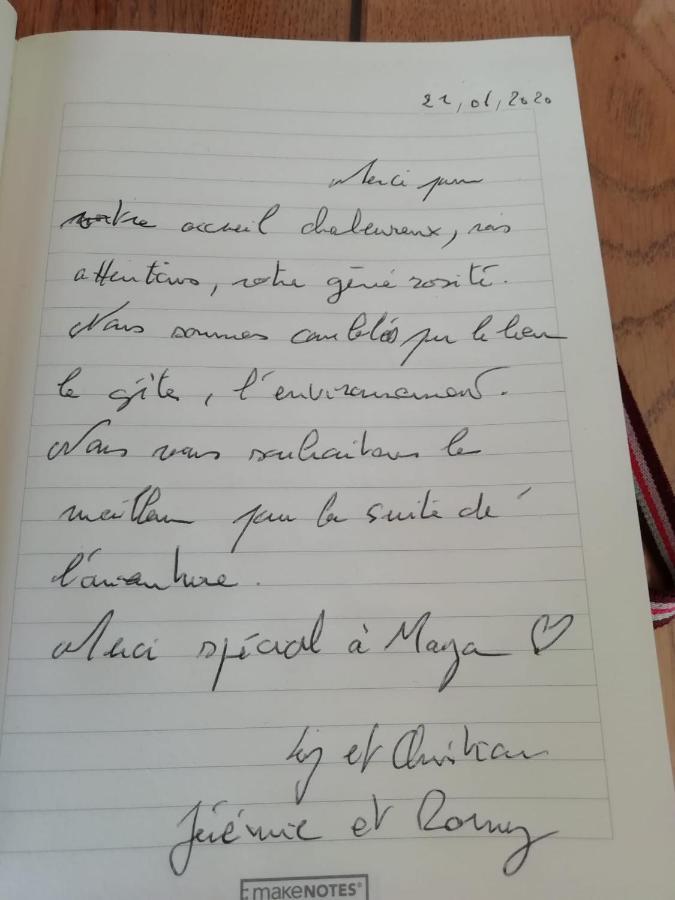 21,01,2020
Merci pour
votre accueil chaleureux, vos
attentions, votre générosité.
Nous sommes comblés par le lieu
le gîte, l'environnement.
Nous vous souhaitons le
meilleur pour la suite de
l'aventure.
Merci spécial à Maya ♡
et Christian
Jérémie et Romy
makeNOTES®